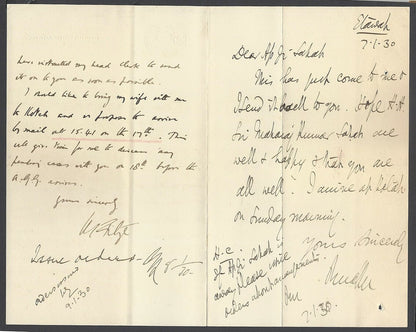 have instructed my head clerk to send
it on to you as soon as possible.
I should like to bring my wife with me
to Kotah and we propose to arrive
by mail at 15.41 on the 17th. This
will give time for me to discuss any
pending cases with you on 18th before the
A.G.G. arrives.
Yours sincerely
Issue orders
8/1/30
orders issued
9.1.30
Etawah
7-1-30
Dear Ap Ji Sahab
This has just come to me &
I send it back to you. Hope H.H.
Sri Maharaj Kumar Sahab are
well & happy & that you are
all well. I arrive at Kotah
on Sunday morning.
Yours Sincerely
H.C.
If Ap Ji Sahab is
away please issue
orders about arrangements.
7.1.30.